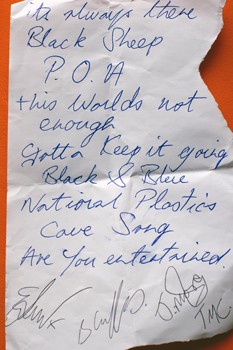 its always there
Black Sheep
P.O.A
this Worlds not
enough
Gotta Keep it going
Black & Blue
National Plastics
Cave Song
Are You entertained.
TMC.